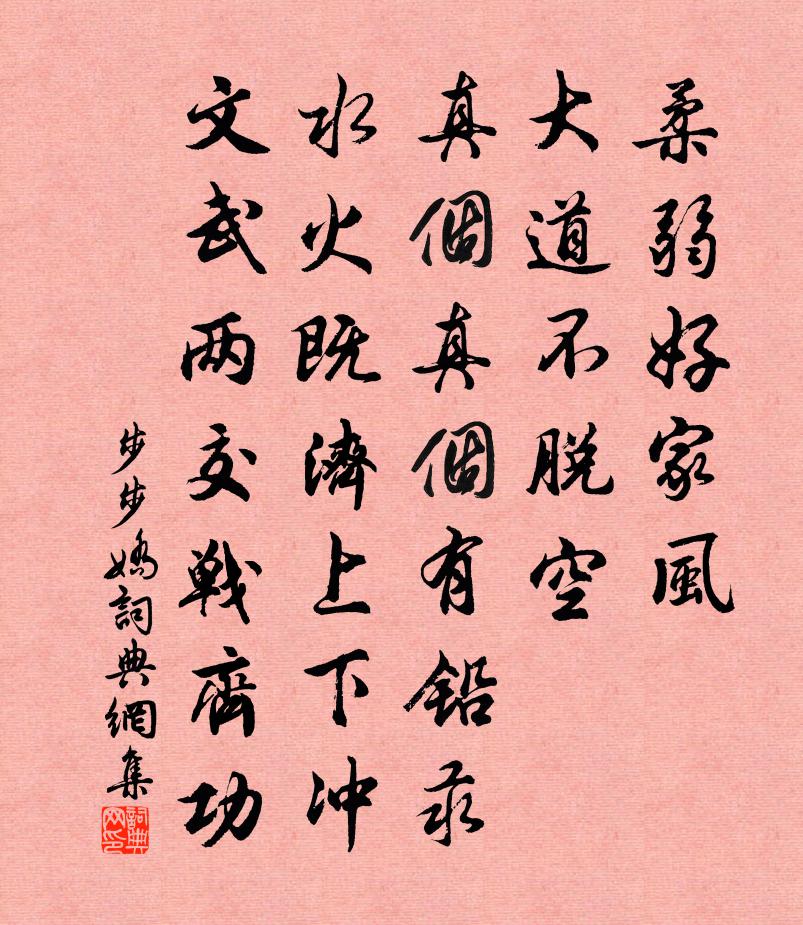 柔弱好家風
大道不脱空
真個真個有鉛汞
水火既濟上下冲
文武两交戦齊功
步步嬌詞典網集
詞典网印